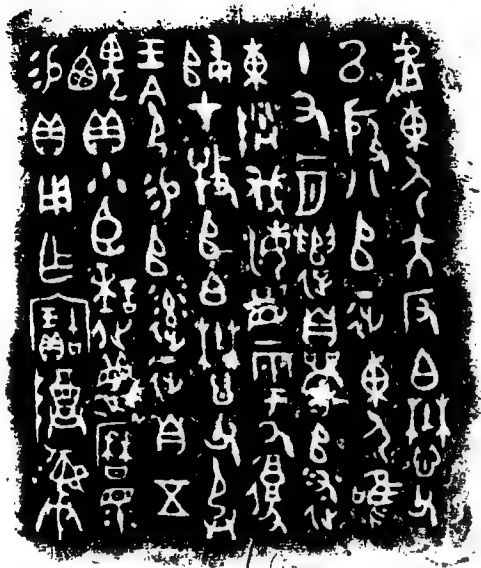 𠭯東尸大反白懋父
以殷八𠂤征東尸唯
十又一月遣自𠂤述
東伐海眉雩厥復
歸才牧𠂤白懋父承
王令易𠂤率征自五
齵貝小臣謎蔑曆眔
易貝用乍寶尊彝